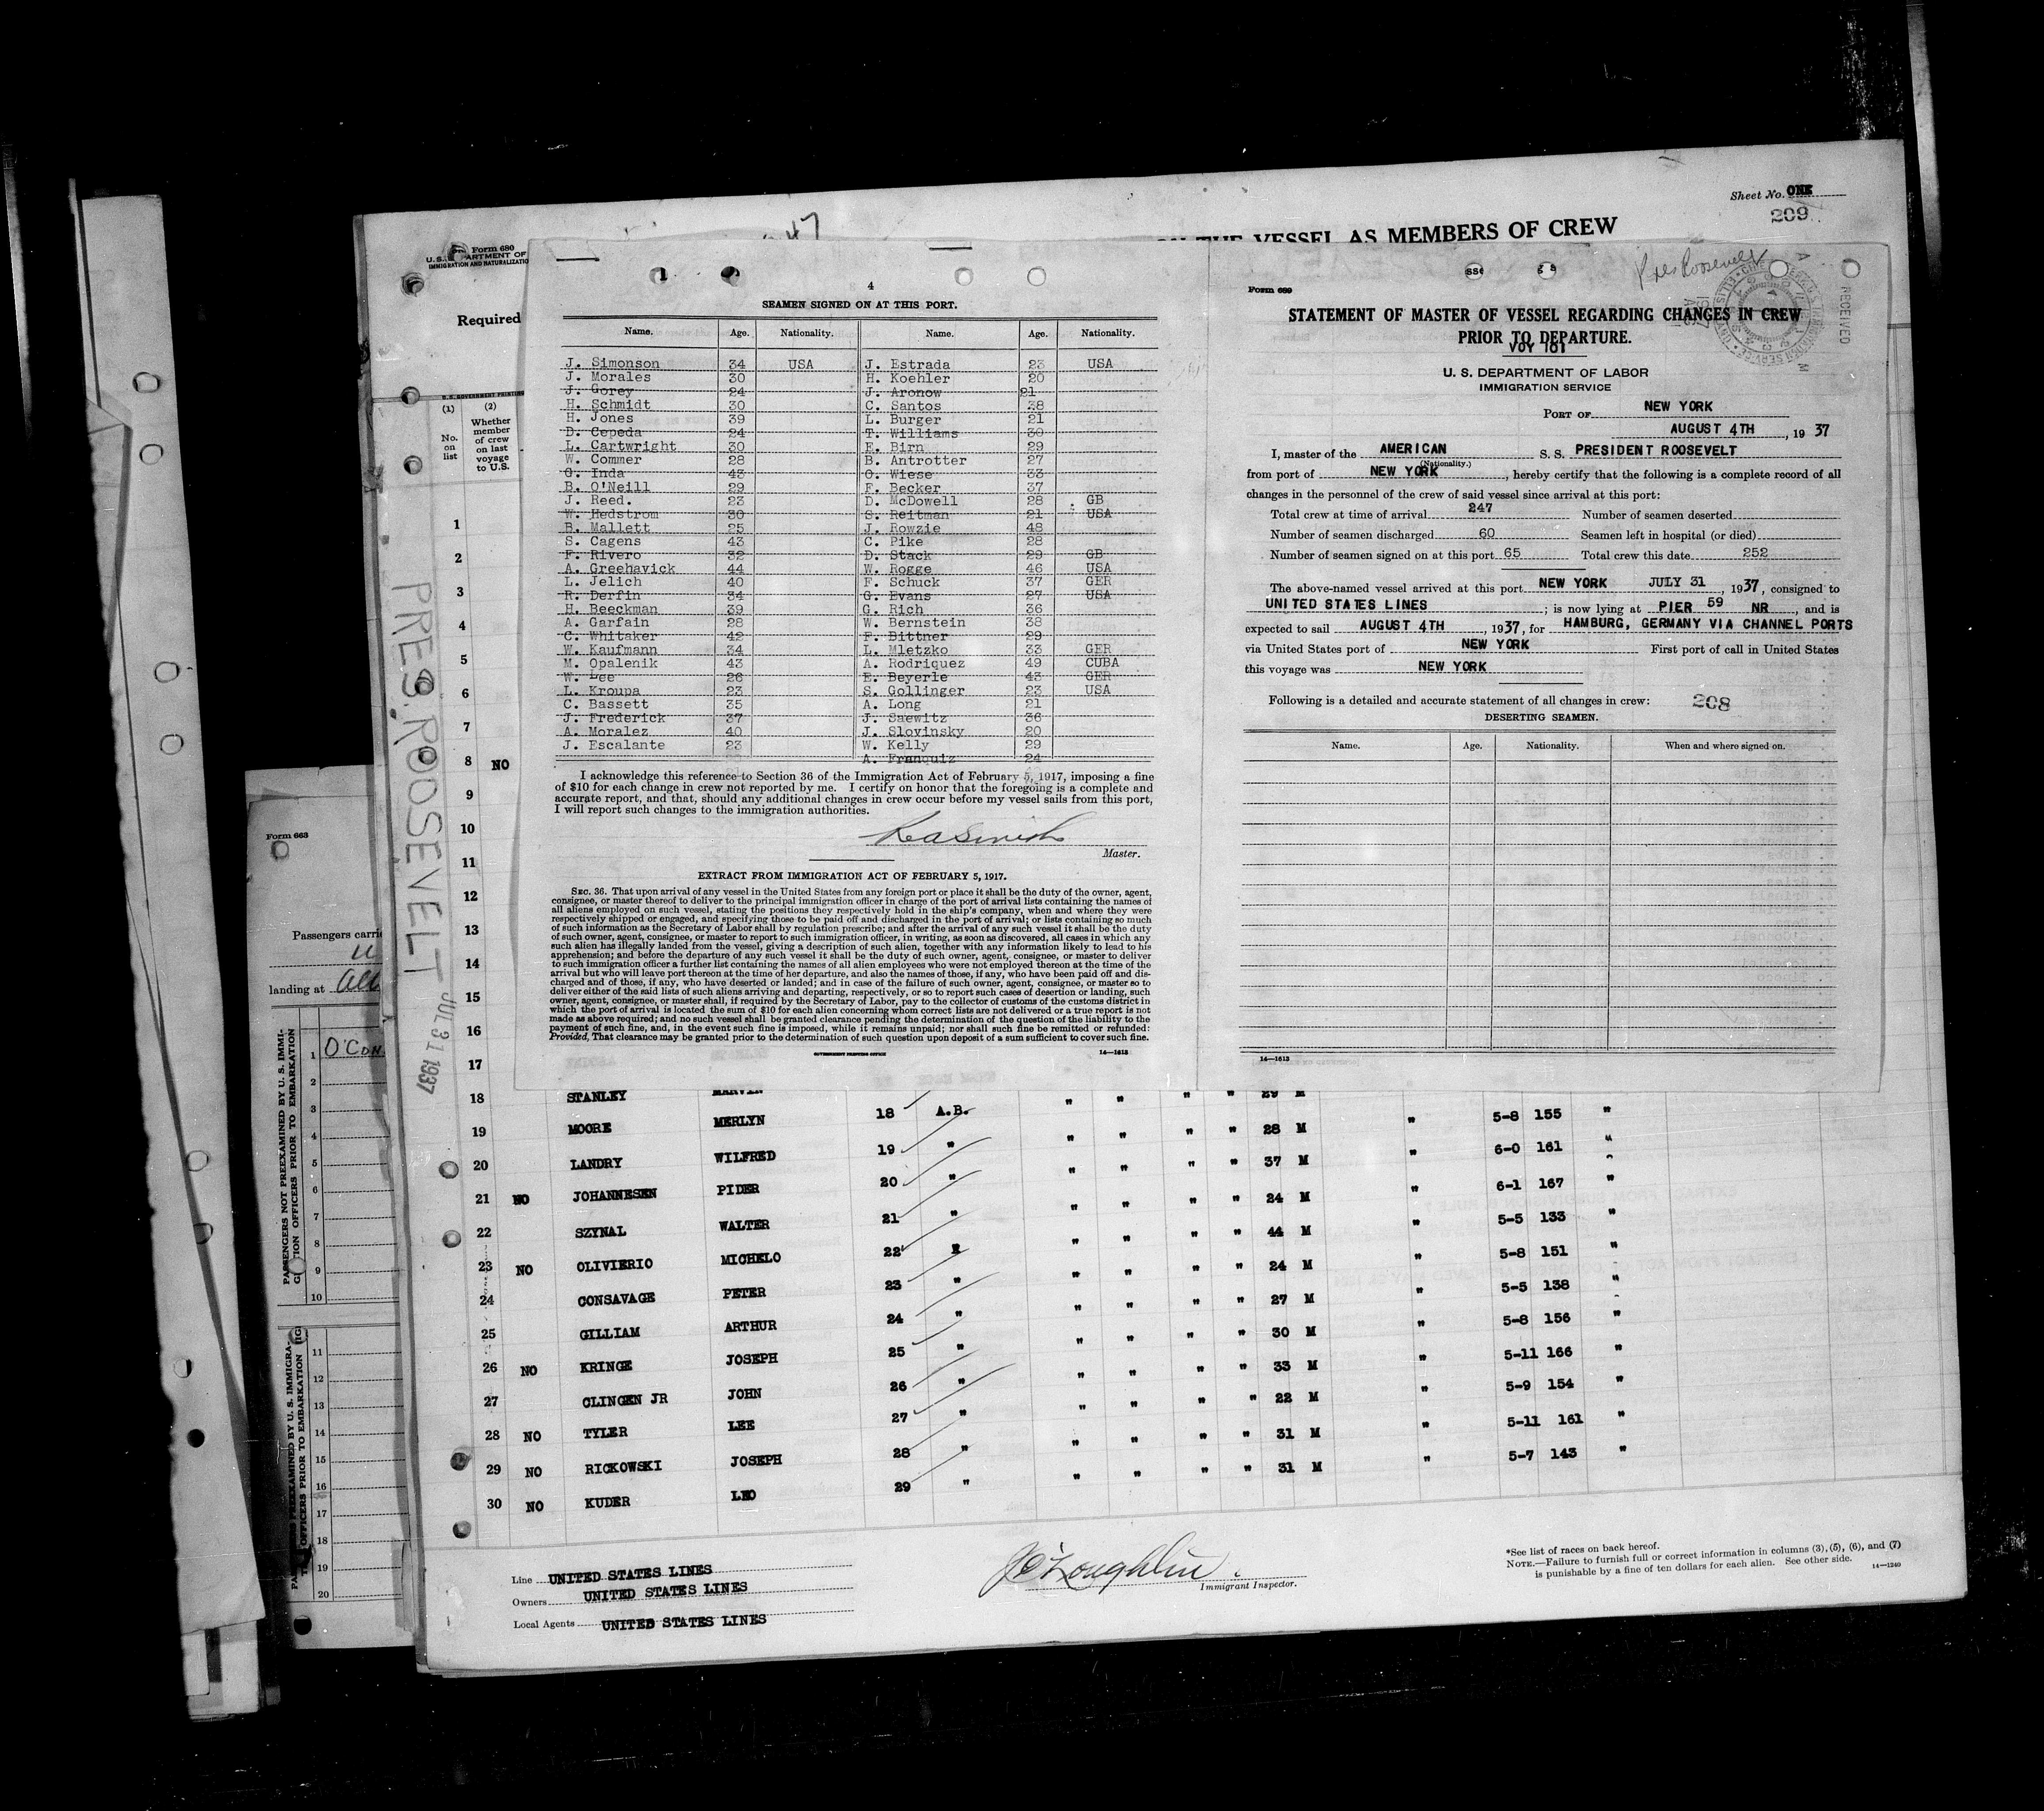 Sheet No. ONE
209
VESSEL AS MEMBERS OF CREW
Form 680
Required
U. S. GOVERNMENT PRINTING
(1) (2)
No. on list
Whether member of crew on last voyage to U.S.
PRES. ROOSEVELT JUL 31 1937
4
SEAMEN SIGNED ON AT THIS PORT.
Name. Age. Nationality. Name. Age. Nationality.
J. Simonson 34 USA J. Estrada 23 USA
J. Morales 30 H. Koehler 20
J. Gorey 24 J. Aronow 21
H. Schmidt 30 C. Santos 38
H. Jones 39 L. Burger 21
D. Cepeda 24 T. Williams 30
L. Cartwright 30 E. Birn 29
W. Commer 28 B. Antrotter 27
G. Inda 43 O. Wiese 33
B. O'Neill 29 F. Becker 37
J. Reed. 23 D. McDowell 28 GB
W. Hedstrom 30 S. Reitman 21 USA
B. Mallett 25 J. Rowzie 48
S. Cagens 43 C. Pike 28
F. Rivero 32 D. Stack 29 GB
A. Greehavick 44 W. Rogge 46 USA
L. Jelich 40 F. Schuck 37 GER
R. Derfin 34 G. Evans 27 USA
H. Beeckman 39 G. Rich 36
A. Garfain 28 W. Bernstein 38
C. Whitaker 42 F. Bittner 29
W. Kaufmann 34 L. Mletzko 33 GER
M. Opalenik 43 A. Rodriquez 49 CUBA
W. Lee 26 E. Beyerle 43 GER
L. Kroupa 23 S. Gollinger 23 USA
C. Bassett 35 A. Long 21
J. Frederick 37 J. Saewitz 36
A. Moralez 40 J. Slovinsky 20
J. Escalante 23 W. Kelly 29
A. Franquiz 24
I acknowledge this reference to Section 36 of the Immigration Act of February 5, 1917, imposing a fine
of $10 for each change in crew not reported by me. I certify on honor that the foregoing is a complete and
accurate report, and that, should any additional changes in crew occur before my vessel sails from this port,
I will report such changes to the immigration authorities.
Master.
EXTRACT FROM IMMIGRATION ACT OF FEBRUARY 5, 1917.
SEC. 36. That upon arrival of any vessel in the United States from any foreign port or place it shall be the duty of the owner, agent,
consignee, or master thereof to deliver to the principal immigration officer in charge of the port of arrival lists containing the names of
all aliens employed on such vessel, stating the positions they respectively hold in the ship's company, when and where they were
respectively shipped or engaged, and specifying those to be paid off and discharged in the port of arrival; or lists containing so much
of such information as the Secretary of Labor shall by regulation prescribe; and after the arrival of any such vessel it shall be the duty
of such owner, agent, consignee, or master to report to such immigration officer, in writing, as soon as discovered, all cases in which any
such alien has illegally landed from the vessel, giving a description of such alien, together with any information likely to lead to his
apprehension; and before the departure of any such vessel it shall be the duty of such owner, agent, consignee, or master to deliver
to such immigration officer a further list containing the names of all alien employees who were not employed thereon at the time of the
arrival but who will leave port thereon at the time of her departure, and also the names of those, if any, who have been paid off and dis-
charged and of those, if any, who have deserted or landed; and in case of the failure of such owner, agent, consignee, or master so to
deliver either of the said lists of such aliens arriving and departing, respectively, or so to report such cases of desertion or landing, such
owner, agent, consignee, or master shall, if required by the Secretary of Labor, pay to the collector of customs of the customs district in
which the port of arrival is located the sum of $10 for each alien concerning whom correct lists are not delivered or a true report is not
made as above required; and no such vessel shall be granted clearance pending the determination of the question of the liability to the
payment of such fine, and, in the event such fine is imposed, while it remains unpaid; nor shall such fine be remitted or refunded:
Provided, That clearance may be granted prior to the determination of such question upon deposit of a sum sufficient to cover such fine.
GOVERNMENT PRINTING OFFICE 14—1613
Form 689
Pres Roosevelt
RECEIVED
STATEMENT OF MASTER OF VESSEL REGARDING CHANGES IN CREW
PRIOR TO DEPARTURE.
VOY 101
U. S. DEPARTMENT OF LABOR
IMMIGRATION SERVICE
PORT OF NEW YORK
AUGUST 4TH, 1937
I, master of the AMERICAN S. S. PRESIDENT ROOSEVELT
(Nationality.)
from port of NEW YORK, hereby certify that the following is a complete record of all
changes in the personnel of the crew of said vessel since arrival at this port:
Total crew at time of arrival 247 Number of seamen deserted
Number of seamen discharged 60 Seamen left in hospital (or died)
Number of seamen signed on at this port 65 Total crew this date 252
The above-named vessel arrived at this port NEW YORK JULY 31, 1937, consigned to
UNITED STATES LINES; is now lying at PIER 59 NR, and is
expected to sail AUGUST 4TH, 1937, for HAMBURG, GERMANY VIA CHANNEL PORTS
via United States port of NEW YORK First port of call in United States
this voyage was NEW YORK
Following is a detailed and accurate statement of all changes in crew: 208
DESERTING SEAMEN.
Name. Age. Nationality. When and where signed on.
14—1613
1
2
3
4
5
6
7
8 NO
9
10
11
12
13
14
15
16
17
18 STANLEY MARVIN 18 A.B. " " " " 29 M
19 MOORE MERLYN 19 " " " " " 28 M " 5-8 155 "
20 LANDRY WILFRED 20 " " " " " 37 M " 6-0 161 "
21 NO JOHANNESEN PIDER 21 " " " " " 24 M " 6-1 167 "
22 SZYNAL WALTER 22 " " " " " 44 M " 5-5 133 "
23 NO OLIVIERIO MICHELO 23 " " " " " 24 M " 5-8 151 "
24 CONSAVAGE PETER 24 " " " " " 27 M " 5-5 138 "
25 GILLIAM ARTHUR 25 " " " " " 30 M " 5-8 156 "
26 NO KRINGE JOSEPH 26 " " " " " 33 M " 5-11 166 "
27 CLINGEN JR JOHN 27 " " " " " 22 M " 5-9 154 "
28 NO TYLER LEE 28 " " " " " 31 M " 5-11 161 "
29 NO RICKOWSKI JOSEPH 29 " " " " " 31 M " 5-7 143 "
30 NO KUDER LEO
Line UNITED STATES LINES
Owners UNITED STATES LINES
Local Agents UNITED STATES LINES
J O'Loughlin
Immigrant Inspector.
*See list of races on back hereof.
NOTE.—Failure to furnish full or correct information in columns (3), (5), (6), and (7)
is punishable by a fine of ten dollars for each alien. See other side. 14—1240
Form 663
Passengers
landing at
PASSENGERS NOT PREEXAMINED BY U. S. IMMI-
OFFICERS PRIOR TO EMBARKATION
1
2
3
4
5
6
7
8
9
10
PREEXAMINED BY U. S. IMMIGRA-
OFFICERS PRIOR TO EMBARKATION
11
12
13
14
15
16
17
18
19
20